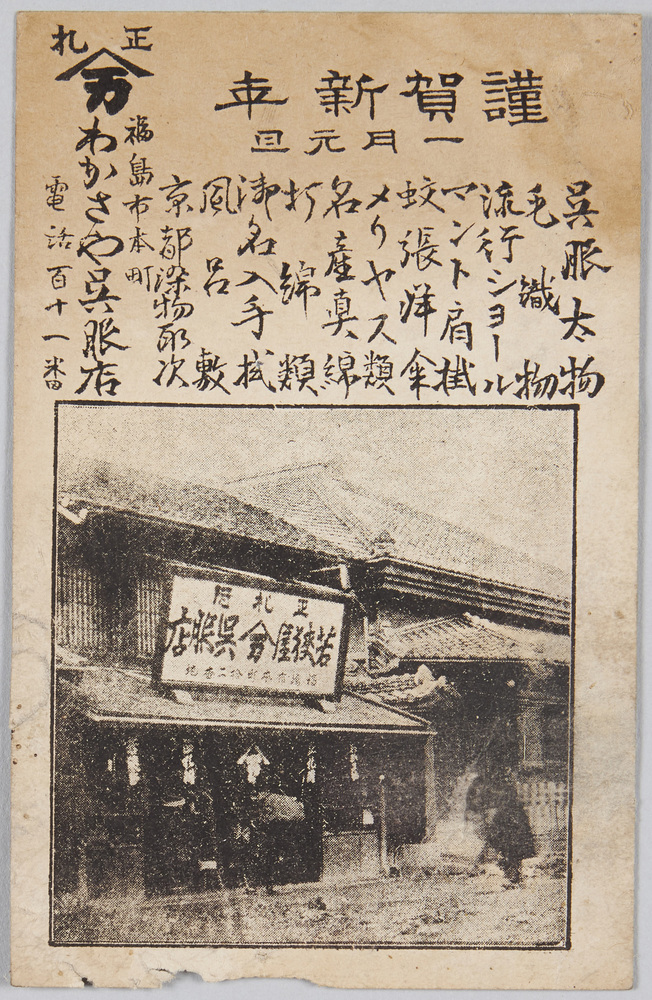 謹賀新年
一月元旦
呉服太物
毛織物
流行ショール
マント肩掛
蚊張洋傘
メリヤス類
名産真綿
打綿類
御名入手拭
風呂敷
京都染物取次
福島市本町
正札
万
わかさや呉服店
電話百十一番
正札店
若狭屋万呉服店
福島市本町拾二番地